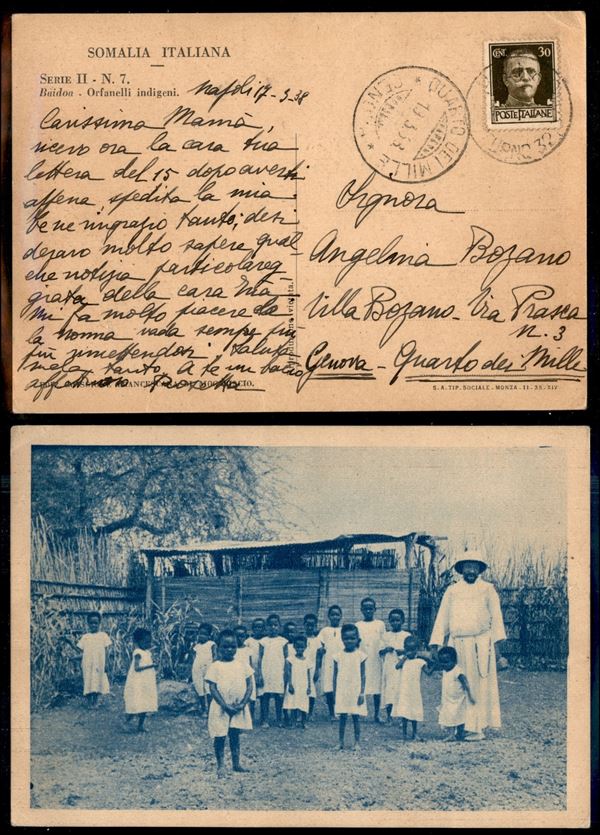 SOMALIA ITALIANA
SERIE II - N. 7.
Baidoa - Orfanelli indigeni.
Napoli 17-3-38
Carissima Mamà,
ricevo ora la cara tua
lettera del 15 dopo averti
appena spedita la mia
bene ringrazio tanto, desi
deravo molto sapere qual-
che notizia particolareg-
giata della cara
Mi fa molto piacere
la nonna vada sempre più
più rimettendosi, saluta
mela tanto. A te un bacio
aff
MOGADISCIO.
CENT. 30
POSTE ITALIANE
QUARTO DEI MILLE
19.3.38
GENOVA
Signora
Angelina Bozano
Villa Bozano - Via Prasca
n. 3
Genova - Quarto dei Mille
S. A. TIP. SOCIALE - MONZA - 11-35-XIV